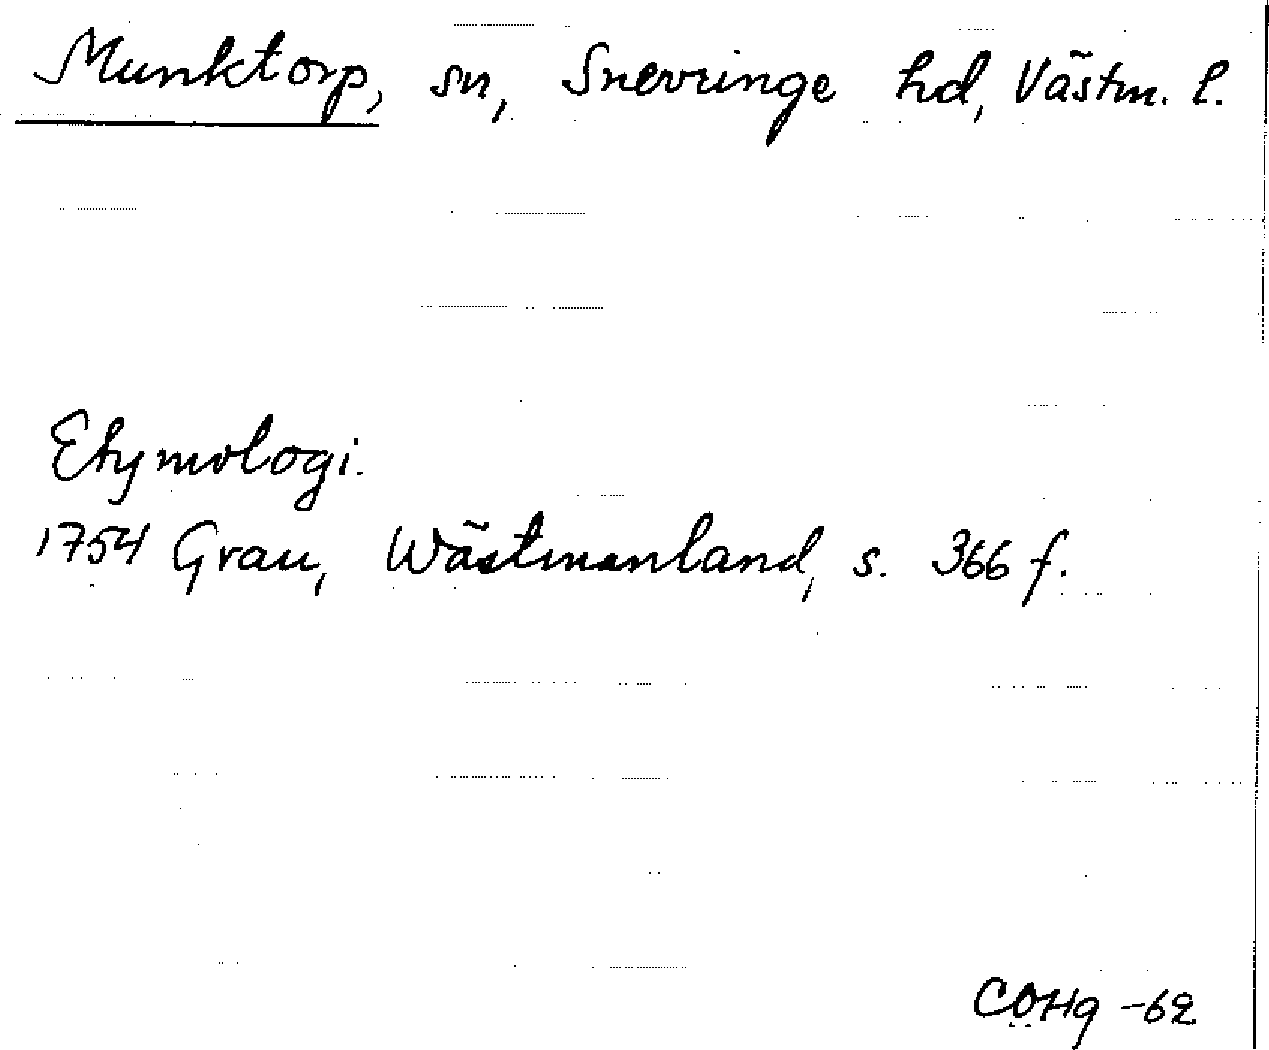 Munktorp, sn, Snevringe hd, Västm. l.
Etymologi.
1754 Grau, Wästmanland, s. 366 f.
COHg -62